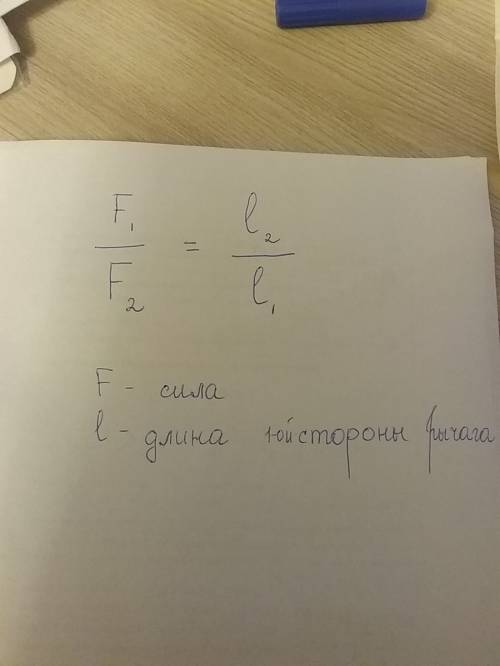 F₁ / F₂ = l₂ / l₁
F - сила
l - длина 1-ой стороны рычага